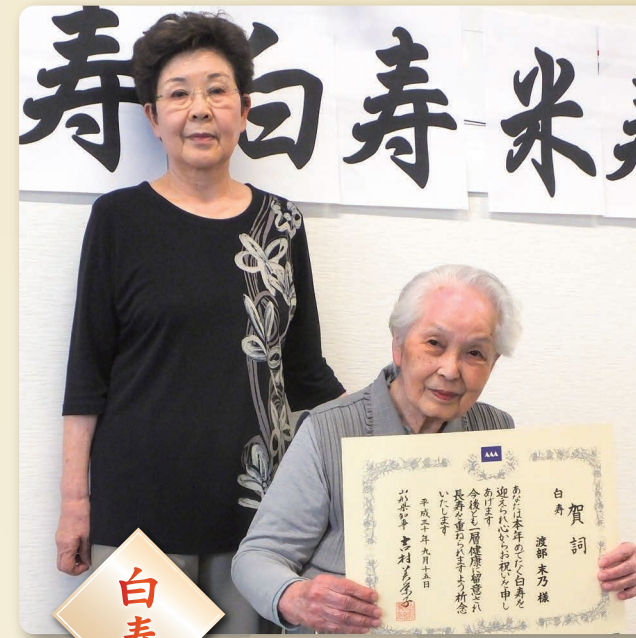 寿
白
寿
米
AAA
賀詞
白寿
渡部末乃様
あなたは本年めでたく白寿を
迎えられ心からお祝いを申し
あげます
今後とも一層健康に留意され
長寿を重ねられますよう祈念
いたします
平成三十年九月十五日
山形県知事 吉村美栄子
白寿